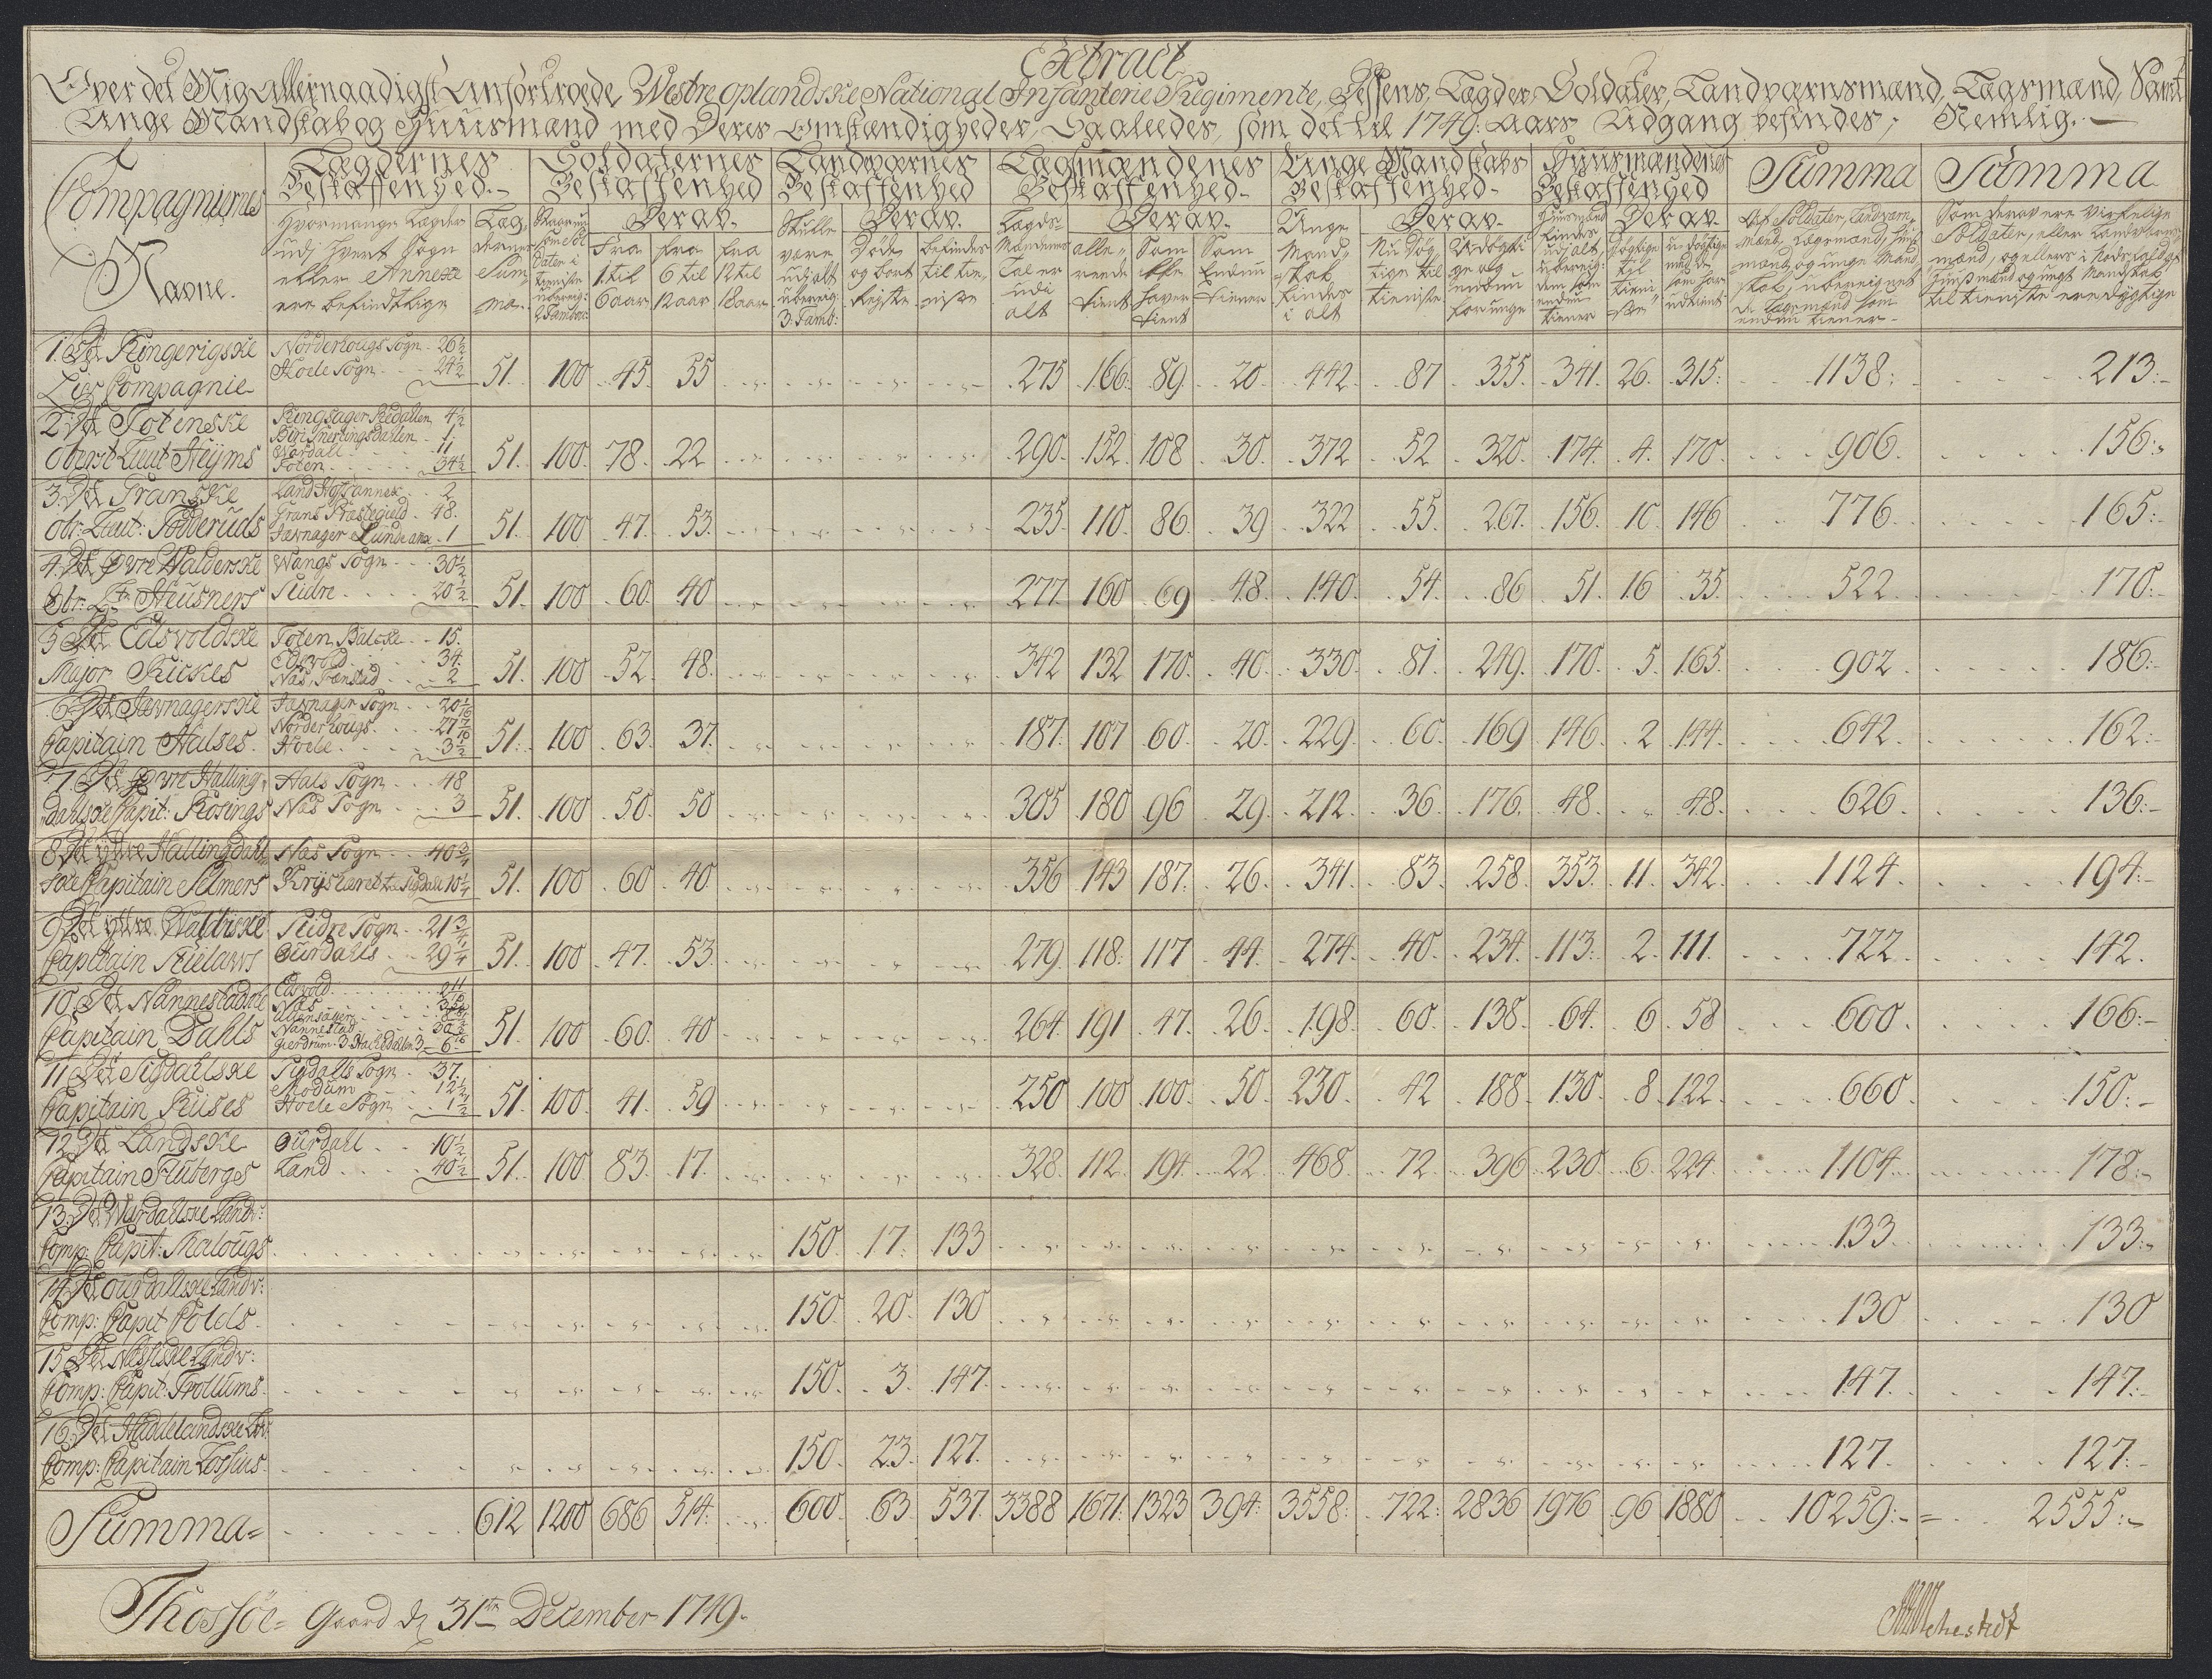 Extract
Over det Mig Allernaadigst Anfortroede Westre oplandske National Infanterie Regimente, Dessens, Lægder, Soldater, Landværnsmænd, Lægsmænd, Samt
Unge Mandskab og Huusmænd med Deres Omstændigheder, Saaleedes, som det til 1749: Aars Udgang befindes; Nemlig.
Compagniernes Navne.
Lægdernes Beskaffenhed.
Soldaternes Beskaffenhed
Landværnes Beskaffenhed
Lægsmændenes Beskaffenhed
Unge Mandskabs Beskaffenhed
Huusmændenes Beskaffenhed
Summa
Summa
Hvormange Lægder udj hvert Sogn eller Annexe ere befindtlige
Læg, dernes Sum, ma.
Derav.
fra 1 til 6 aar
fra 6 til 12 aar
fra 12 til 18 aar
Skulle være udj alt ubereig: 3 Tamb:
Derav.
Døde og bort Rejste
befindes til tie, niste
Lægds, Mændenes Tal er udi alt
Derav.
alle, reede tient
Som Ikke haver tient
Som Endnu tiener
Unge Mand, skab findes i alt
Derav.
Nu døg, tige til tieniste
Udøgti, ge og endnu for unge
Derav.
døgtige til tieni, ste
1. Det Ringerigske Norderhougs Sogn 26½
Liv Compagnie Hoele Sogn 24½ 51. 100 45. 55 275 166. 89. 20. 442. 87 355. 341. 26. 315: 1138: 213:
2. Det Totenske Ringsager Redallen 4½
Biri Snertingsdalen 1.
Wardall 11
Oberst Lieut Heyms Toten 34½ 51. 100. 78. 22 290. 152. 108 30. 372 52 320. 174. 4. 170. 906. 156:
3. Det Granske Land Hofs annex 2
Grans Præstegield 48.
Obr: Lieut: Tødderuds Jævnager Lunde anx. 1 51. 100 47. 53. 235. 110. 86. 39 322 55. 267. 156. 10. 146 776. 165:
4. Det Øvre Walderske Wangs Sogn 30½
Obr: Lt: Heusners Slidre 20½ 51. 100 60. 40 277. 160 69 48. 140. 54. 86 51. 16 35. 522. 170:
5 Det Edsvoldske Toten Balcke 15.
Edsvold 34.
Major Rickes Næs 2 51. 100 52. 48. 342 132 170. 40. 330. 81. 249. 170. 5. 165. 902 186:
6. Det Jævnagerske Jævnager Sogn
Norderhougs
Capitain Halses. Hoele 3½ 51. 100 63. 37. 187. 107 60. 20. 229. 60. 169 146. 2 144. 642. 162:
7. Det Øvre Halling, Aals Sogn 48
dahlske Capit: Rosings Næs Sogn 3 51. 100 50. 50 305 180 96 29. 212. 36. 176. 48. 48. 626. 136:
8. Det ydtre Hallingdahl, Næs Sogn 40¾
ske Capitain Kryshæred 10¼ 51. 100 60. 40. 356 143 187. 26. 341. 83. 258. 353. 11. 342. 1124. 194:
9. Det ydtre Waldriske Slidre Sogn 21¾
Capitain Ourdalls 29¼ 51. 100 47. 53. 279. 118: 117 44. 274. 40. 234. 113. 2. 111. 722. 142.
10. Det Nannestadske Edsvold
Næs
Ullensager
Nannestad
Capitain Dahls Gierdrum 51. 100 60. 40 264. 191. 47. 26. 198. 60. 138. 64. 6. 58 600. 166:
11. Det Sigdahlske Sigdalls Sogn 37.
Modum 12½
Capitain Riises Hoele Sogn 1½ 51. 100. 41. 59 250 100 100. 50. 230. 42 188. 130. 8. 122. 660. 150:
12. Det Landske Ourdall 10½
Capitain Stubergs Land 40½ 51. 100 83. 17. 328. 112. 194. 22. 468. 72. 396. 230. 6. 224. 1104. 178:
13. Det Wardallske Landv:
Comp: Capit: Malougs 150. 17. 133 133. 133:
14. Det Ourdallske Landv:
Comp: Capit Colds. 150. 20. 130 130 130
15 Det Næsiske Landv:
Comp: Capit: Trollums. 150. 3. 147. 147. 147:
16. Det Hadelandske
Comp: Capitain 150. 23. 127. 127. 127:
Summa 612 1200 686 514. 600. 63. 537. 3388 1671. 1323 394. 3558. 722: 2836 1976 96 1880 10259: 2555:
Thossøe Gaard d 31te December 1749.